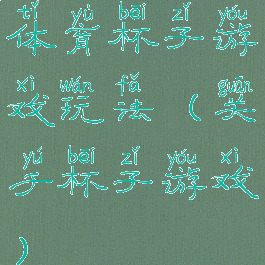 tǐ yù bēi zǐ yóu
体育杯子游
xì wán fǎ guān
戏玩法(关
yú bēi zǐ yóu xì
于杯子游戏
)